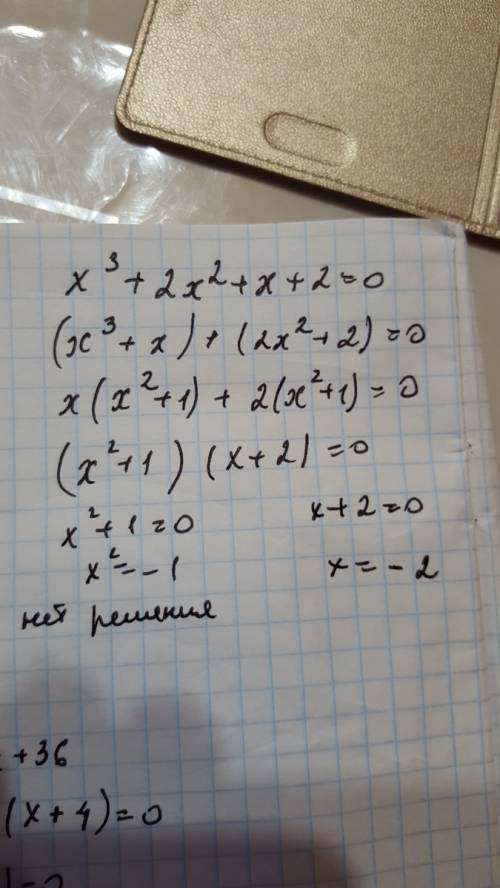 x³ + 2x² + x + 2 = 0
(x³ + x) + (2x² + 2) = 0
x(x² + 1) + 2(x² + 1) = 0
(x² + 1) (x + 2) = 0
x² + 1 = 0 x + 2 = 0
x² = - 1 x = - 2
нет решения
+ 36
(x + 4) = 0